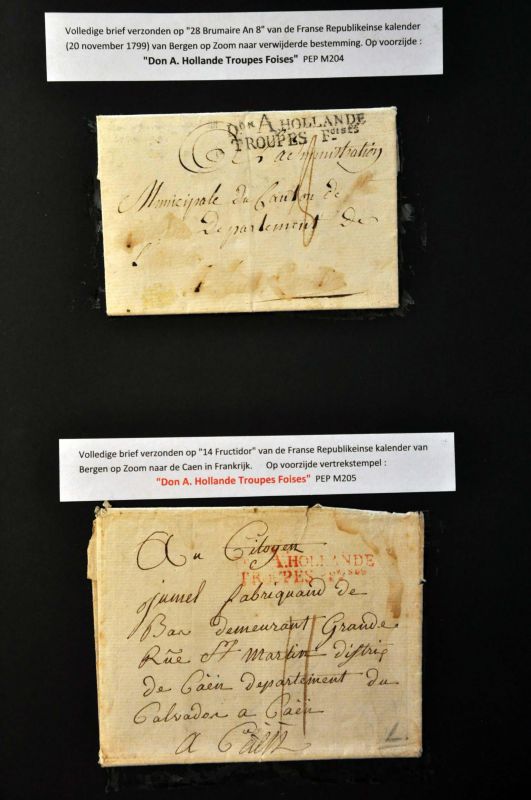 Volledige brief verzonden op "28 Brumaire An 8" van de Franse Republikeinse kalender
(20 november 1799) van Bergen op Zoom naar verwijderde bestemming. Op voorzijde :
"Don A. Hollande Troupes Foises" PEP M204
Don A. HOLLANDE
TROUPES Foises
administration
Municipale du Canton de
Departement de
Volledige brief verzonden op "14 Fructidor" van de Franse Republikeinse kalender van
Bergen op Zoom naar de Caen in Frankrijk. Op voorzijde vertrekstempel :
"Don A. Hollande Troupes Foises" PEP M205
Au Citoyen
A. HOLLANDE
jumel fabriquand de
Bas demeurant Grande
Rüe St Martin distric
de Caën departement du
Calvados a Caën
a Caën